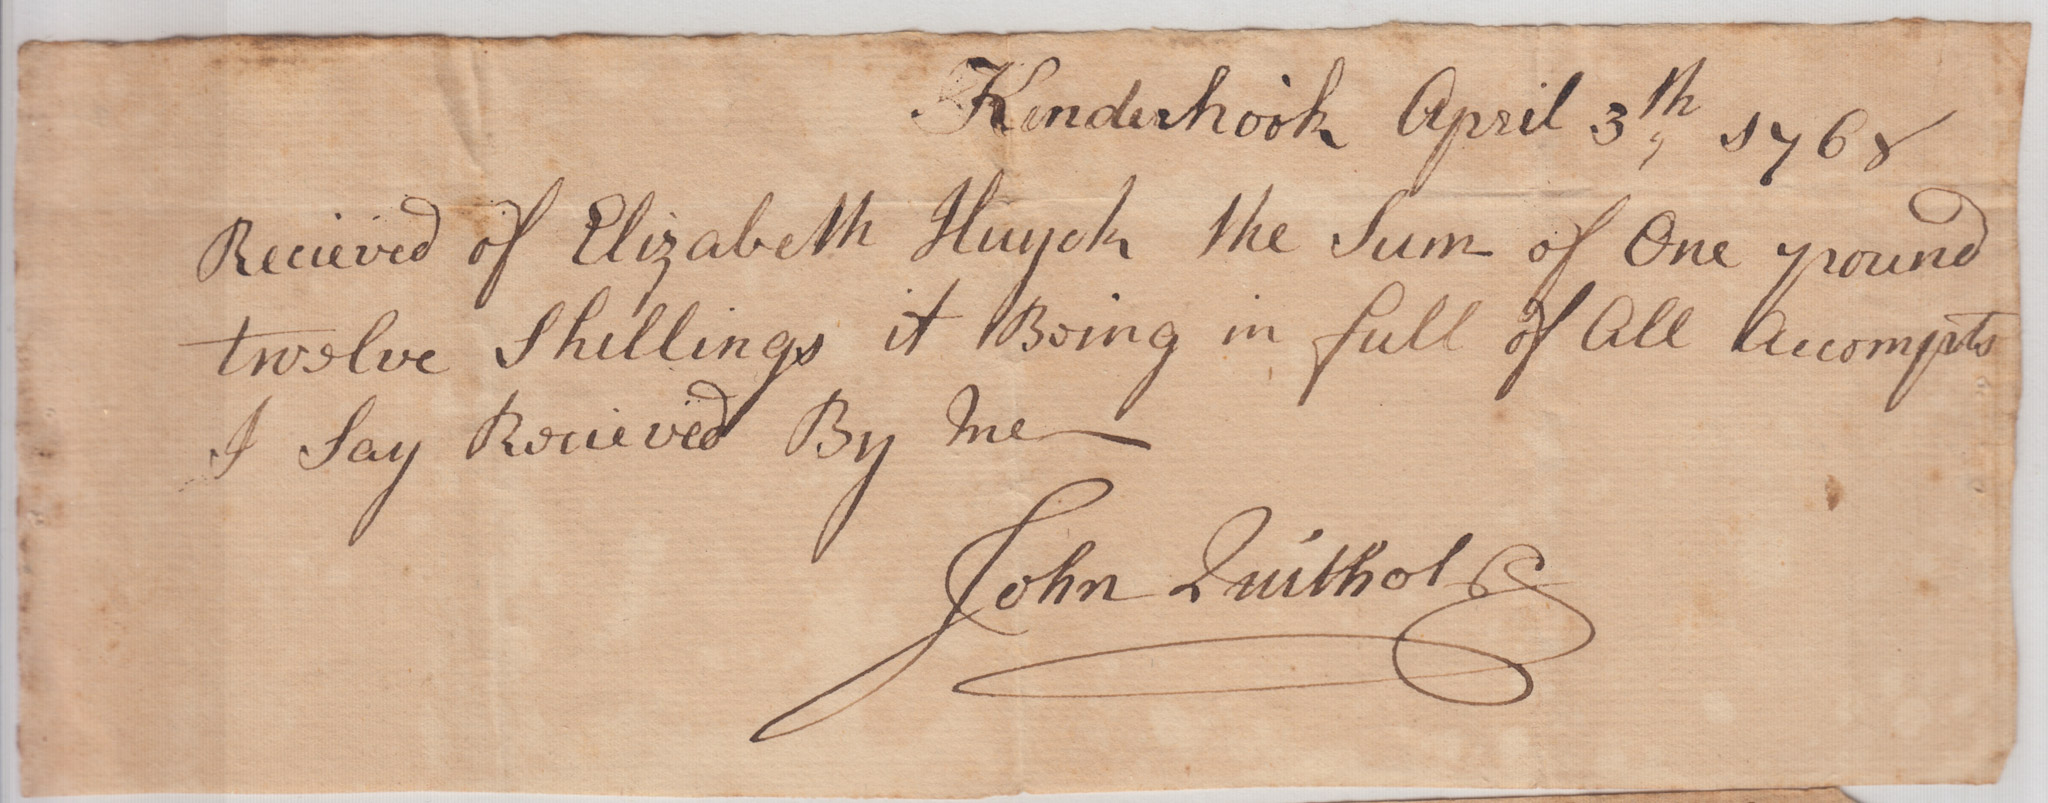 Kinderhook April 3th, 1768
Recieved of Elizabeth Huyck the Sum of One pound
twelve Shillings it Being in full of All Accompts
I Say Recieved By Me
John Quithot